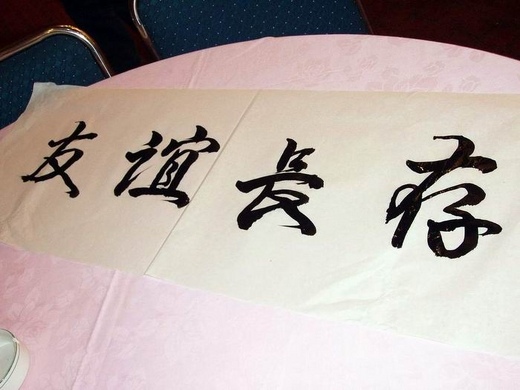 友誼長存